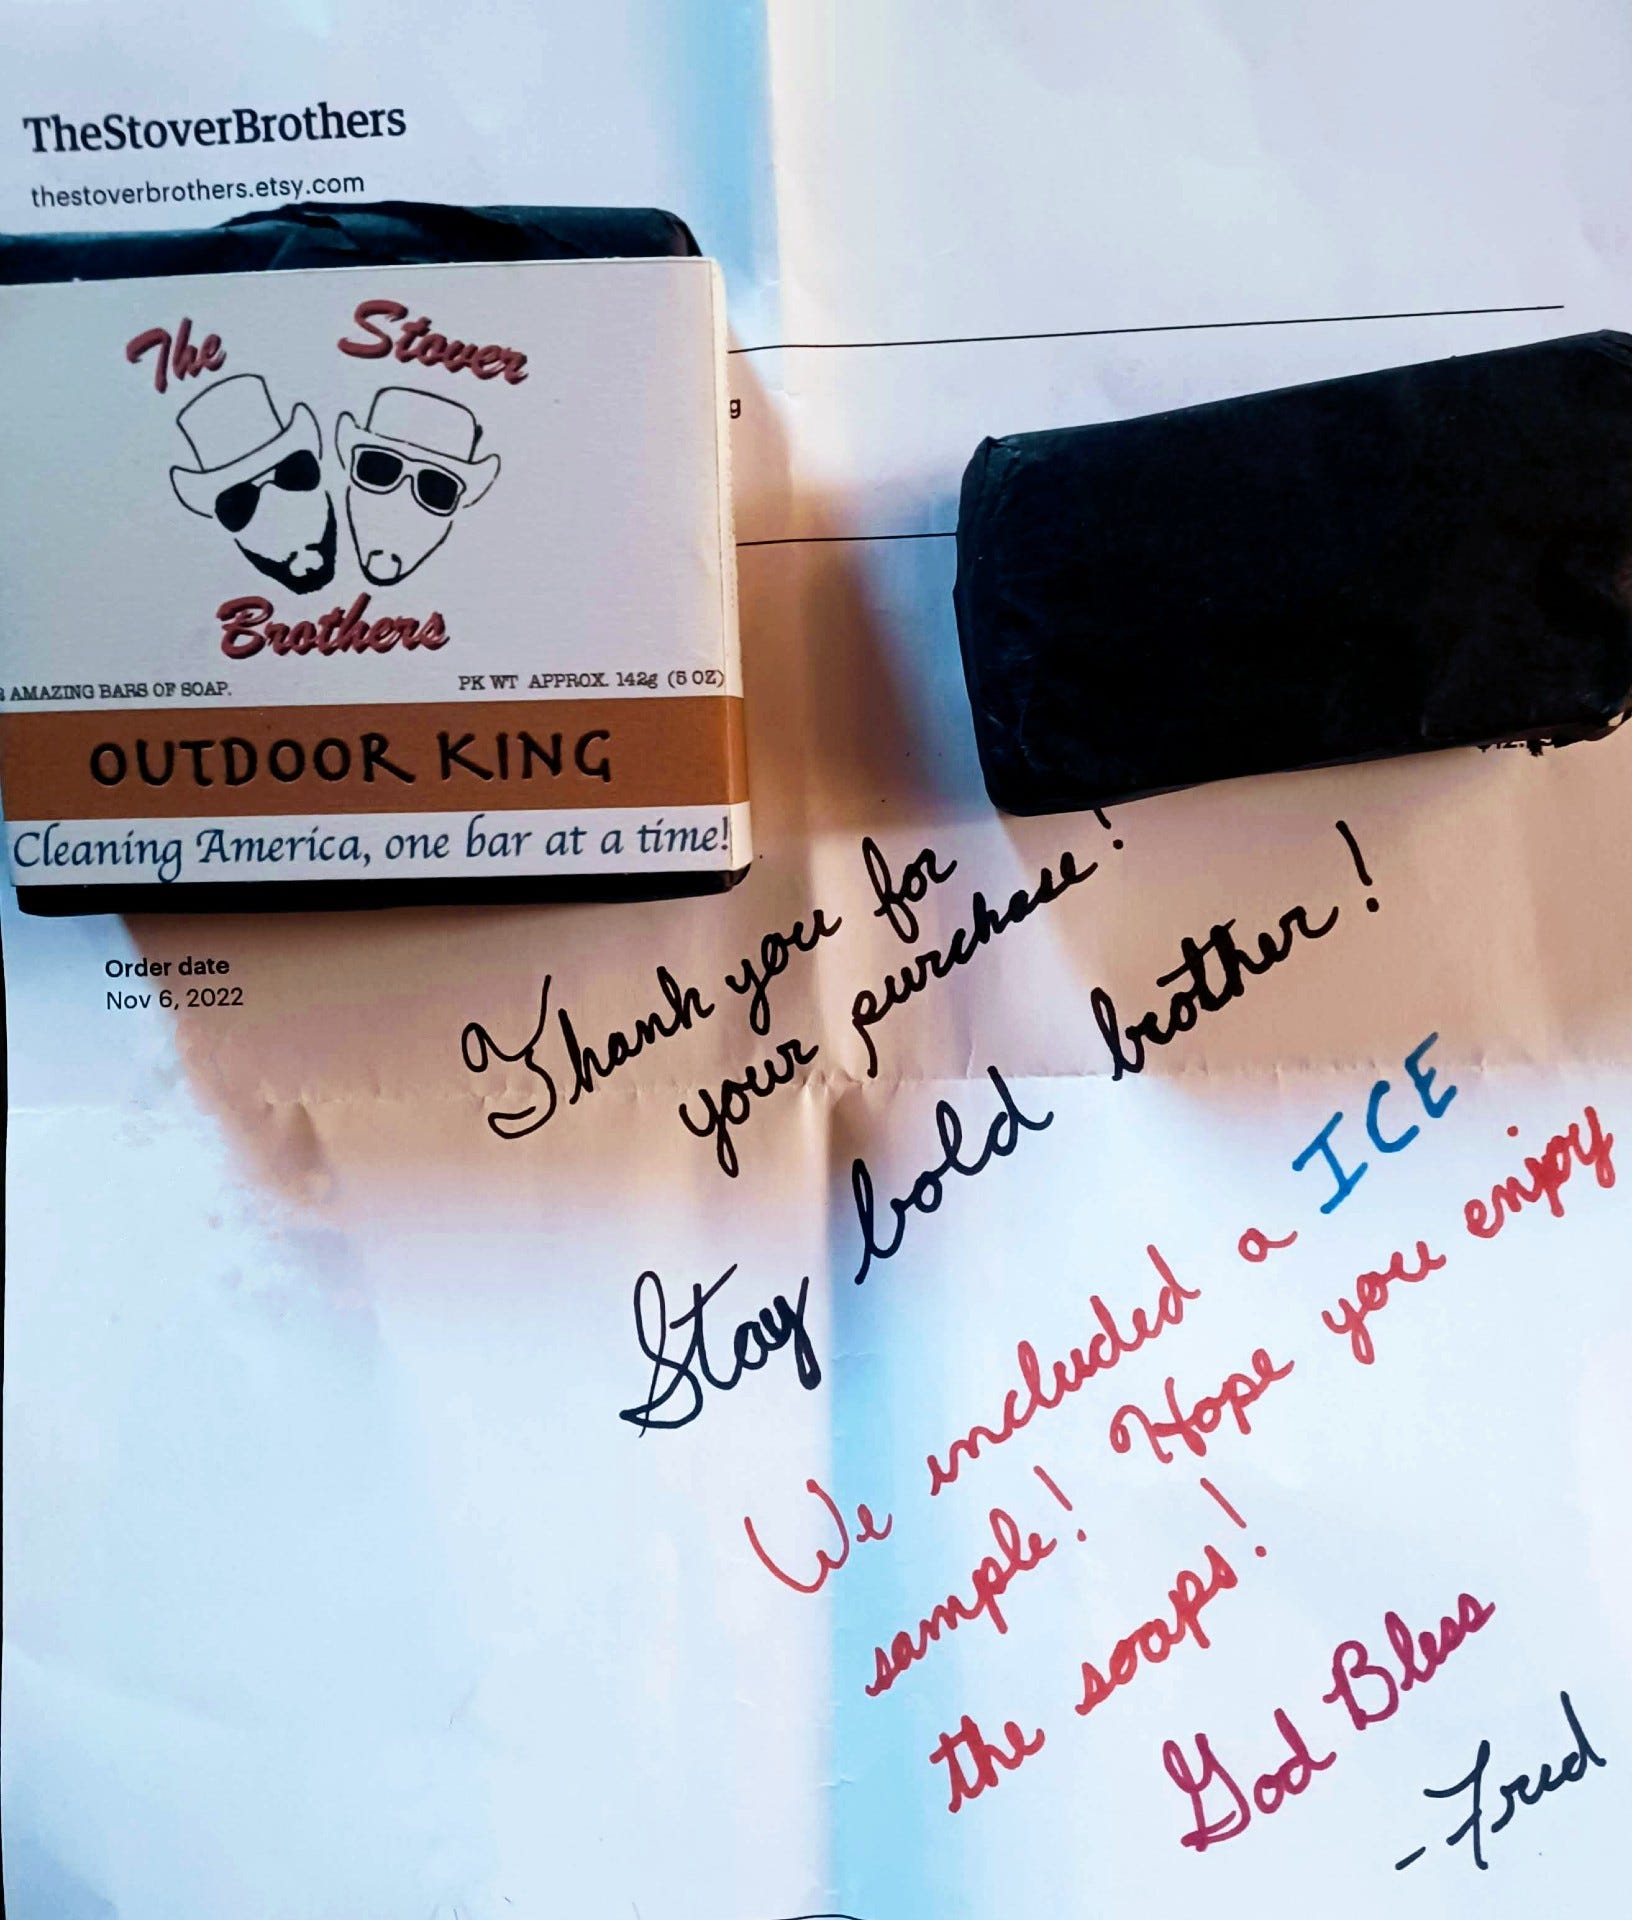 TheStoverBrothers
thestoverbrothers.etsy.com
The Stover
Brothers
AMAZING BARS OF SOAP.
PK WT APPROX. 142g (5 OZ)
OUTDOOR KING
Cleaning America, one bar at a time!
g
Order date
Nov 6, 2022
Thank you for
your purchase!
Stay bold brother!
We included a ICE
sample! Hope you enjoy
the soaps!
God Bless
- Fred